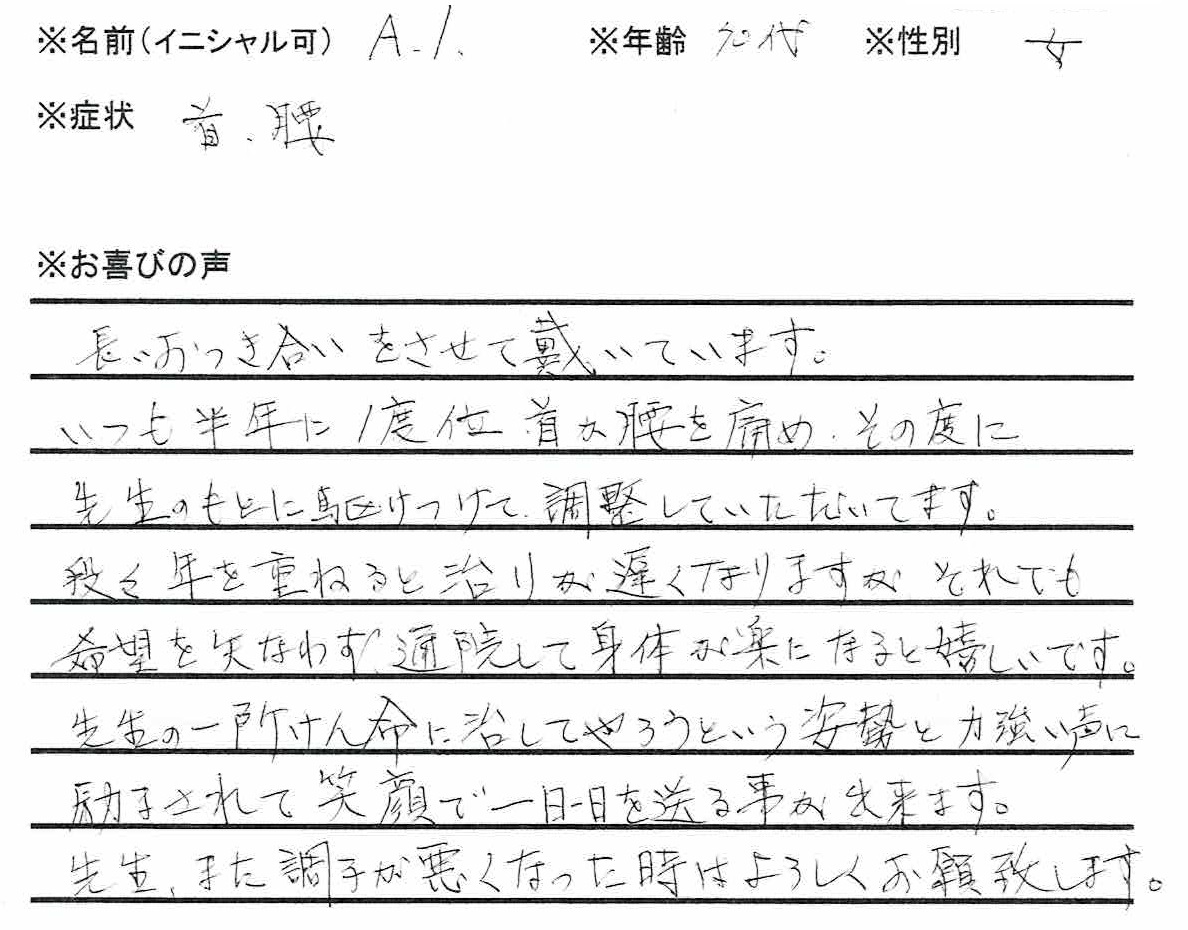 ※名前(イニシャル可) A.I. ※年齢 70代 ※性別 女
※症状 首、腰
※お喜びの声
長いおつき合いをさせて戴いています。
いつも半年に1度位首か腰を痛め、その度に
先生のもとに駆けつけて、調整していただいてます。
段々年を重ねると治りが遅くなりますが それでも
希望を失なわず、通院して身体が楽になると嬉しいです。
先生の一所けん命に治してやろうという姿勢と力強い声に
励まされて笑顔で一日一日を送る事が出来ます。
先生、また調子が悪くなった時はよろしくお願致します。